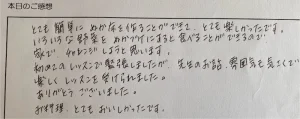 本日のご感想
とても簡単にぬか床を作ることができて、とても楽しかったです。
いろいろな野菜をぬかづけにすると食べることができるので
家でチャレンジしようと思います。
初めてのレッスンで緊張しましたが、先生のお話、雰囲気も良くて
楽しくレッスンを受けられました。
ありがとうございました。
お料理、とてもおいしかったです。